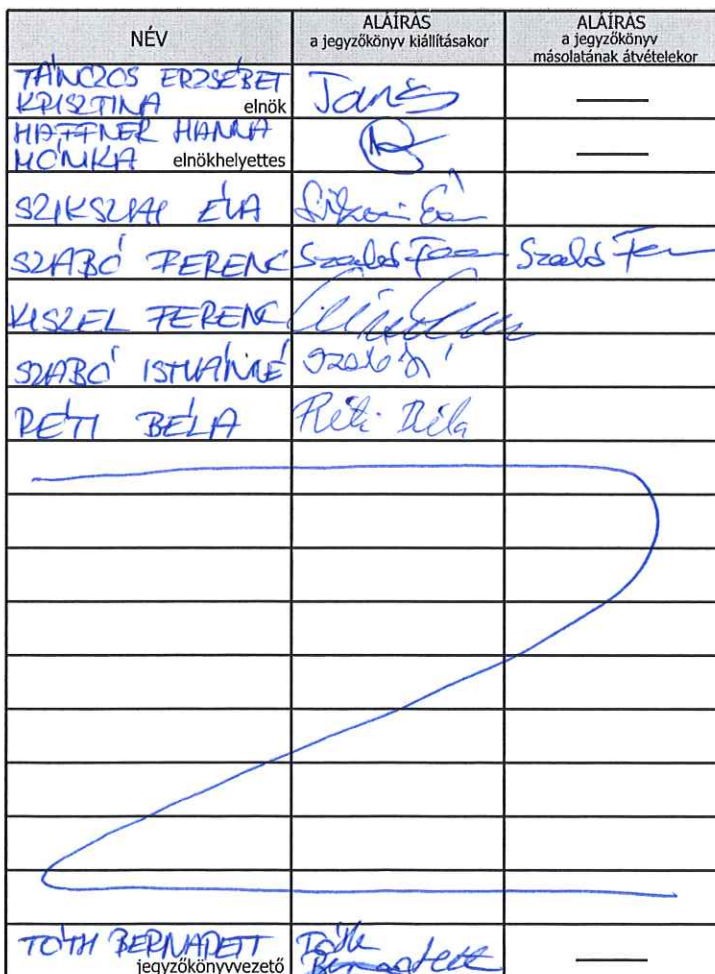 NÉV
ALÁÍRÁS
a jegyzőkönyv kiállításakor
ALÁÍRÁS
a jegyzőkönyv
másolatának átvételekor
TÁNCZOS ERZSÉBET
KRISZTINA elnök
HAFFNER HANNA
MÓNIKA elnökhelyettes
SZIKSZAI ÉVA
SZABÓ FERENC Szabó Szabó
KISZEL FERENC
SZABÓ ISTVÁNNÉ Szabó
RÉTI BÉLA Réti Béla
TÓTH BERNADETT Tóth
jegyzőkönyvvezető Bernadett